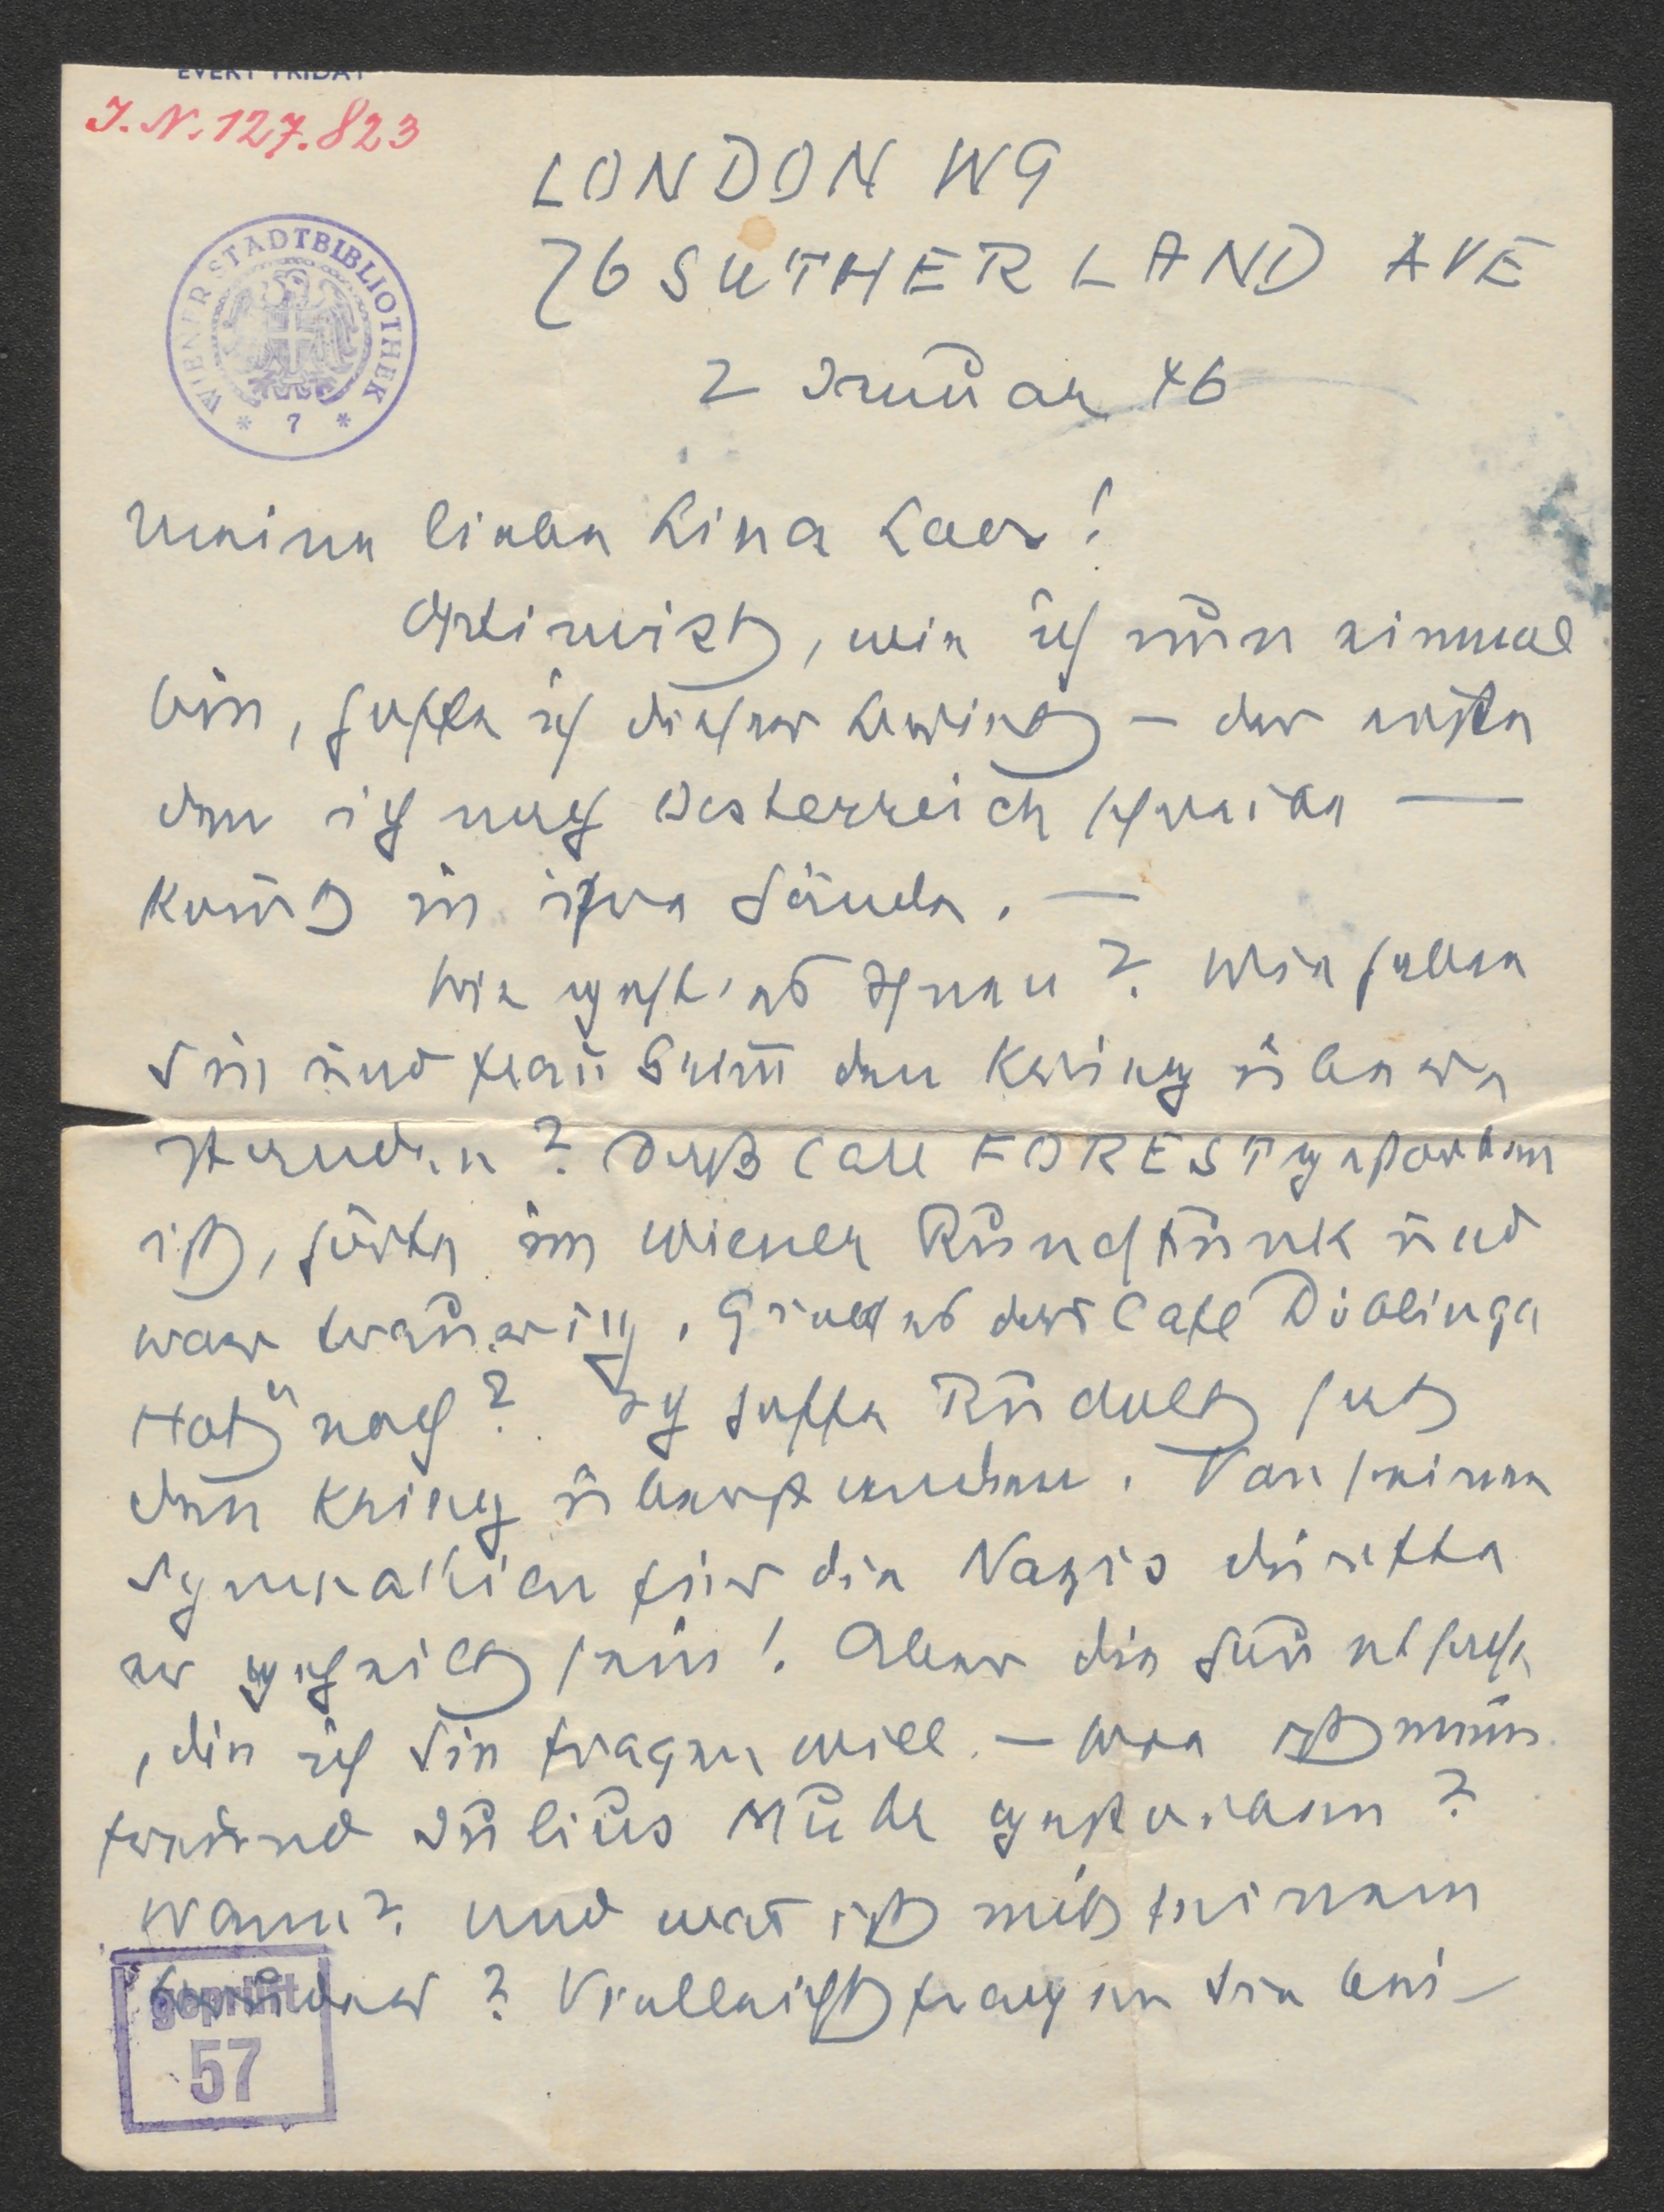 EVERY FRIDAY
I.N. 127.823
WIENER STADTBIBLIOTHEK
* 7 *
LONDON W9
76 SUTHERLAND AVE
2 Januar 46
Meine liebe Lina Loos!
Optimist, wie ich nun einmal
bin, hoffe ich dieser Brief – der erste
den ich nach Oesterreich schreibe —
kommt in ihre Hände. —
Wie geht es Ihnen? Wie haben
Sie und Frau den Krieg über
standen? Daß Carl FOREST gestorben
ist, hörte im Wiener Rundfunk und
war traurig. Giebt es das Cafe Döblinger
Hof" noch? Ich hoffe Rudolf hat
den Krieg überstanden. Von seinen
Sympathien für die Nazis dürfte
er geheilt sein! Aber die Hauptsache
, die ich Sie fragen will. – Wie ist mein
Freund Julius Muhr gestorben?
Wann? Und was ist mit seinem
Bruder? Vielleicht fragen Sie bei-
geprüft
57